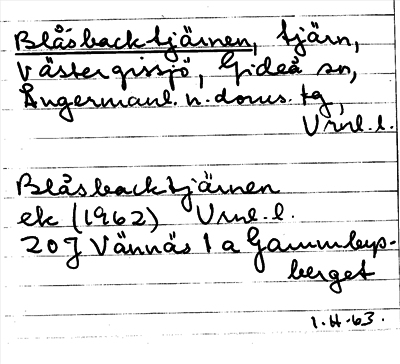 Blåsbacktjärnen, tjärn,
Västergissjö, Gideå sn,
Ångermanl. n. doms. tg,
Vrnl. l.
Blåsbacktjärnen
ek (1962) Vrnl. l.
20 J Vännäs 1 a Gammbyn-
berget
1.H.63.